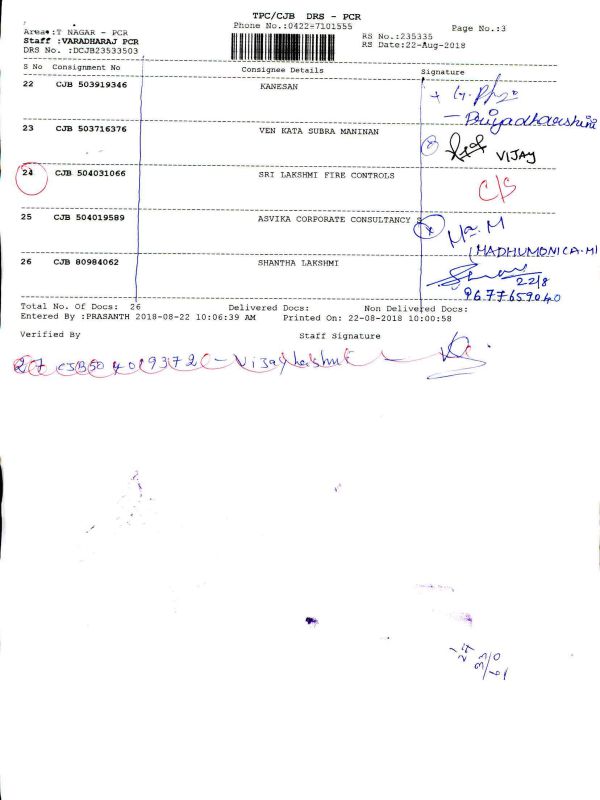 TPC/CJB DRS - PCR
Phone No.:0422-7101555
Page No.:3
Area :T NAGAR - PCR
RS No.:235335
Staff :VARADHARAJ PCR
RS Date:22-Aug-2018
DRS No. :DCJB23533503
S No Consignment No Consignee Details Signature
22 CJB 503919346 KANESAN
Priyadhaarshini
23 CJB 503716376 VEN KATA SUBRA MANINAN
VIJAY
24 CJB 504031066 SRI LAKSHMI FIRE CONTROLS
C/S
25 CJB 504019589 ASVIKA CORPORATE CONSULTANCY S
Ma. M
(MADHUMONICA.M)
26 CJB 80984062 SHANTHA LAKSHMI
22/8
9677659040
Total No. Of Docs: 26 Delivered Docs: Non Delivered Docs:
Entered By :PRASANTH 2018-08-22 10:06:39 AM Printed On: 22-08-2018 10:00:58
Verified By Staff Signature
27 CJB504019372 -